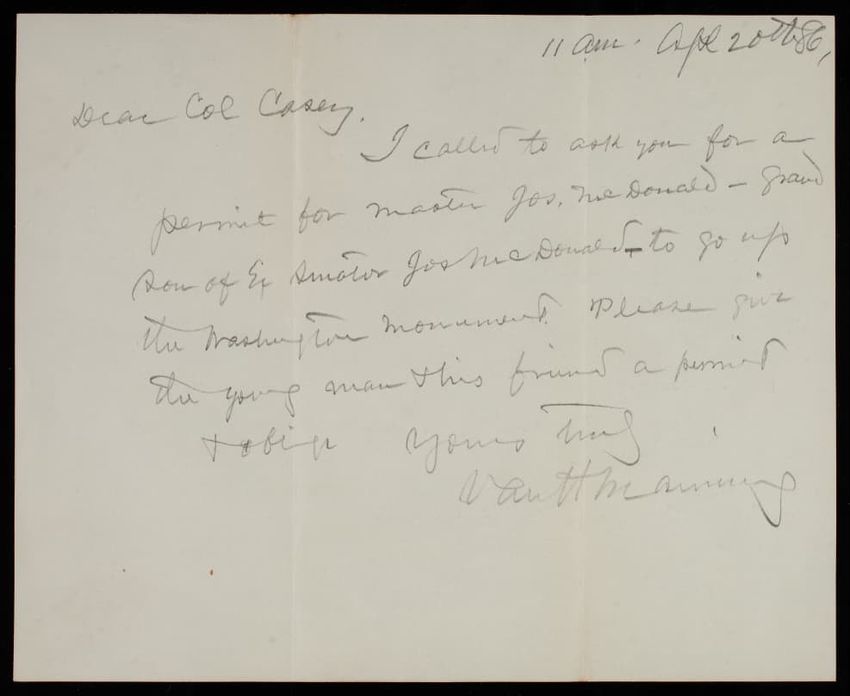 11 am. Apl 20th 86,
Dear Col Casey.
I called to ask you for a
permit for master Jos. McDonald - grand
son of Ex Senator Jos McDonald - to go up
the Washington Monument. Please give
the young man & his friend a permit
& oblige Yours Truly
Van H Manning